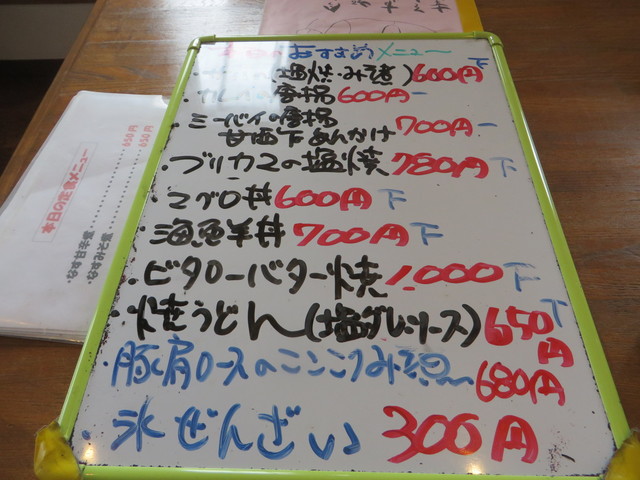 おすすめメニュー
塩焼・みそ煮)600円 下
の唐揚600円 一
・ミーバイの唐揚
甘酒下あんかけ 700円 一
・ブリカマの塩焼 780円 下
・マグロ丼 600円 下
・海鮮丼 700円 下
・ビタローバター焼 1.000 下
・焼うどん(塩ダレ・ソース) 650円 下
・豚肩ロースの 680円
・氷ぜんざい 300円
本日の定食メニュー
・なす甘辛煮 650円
・なすみそ煮 650円